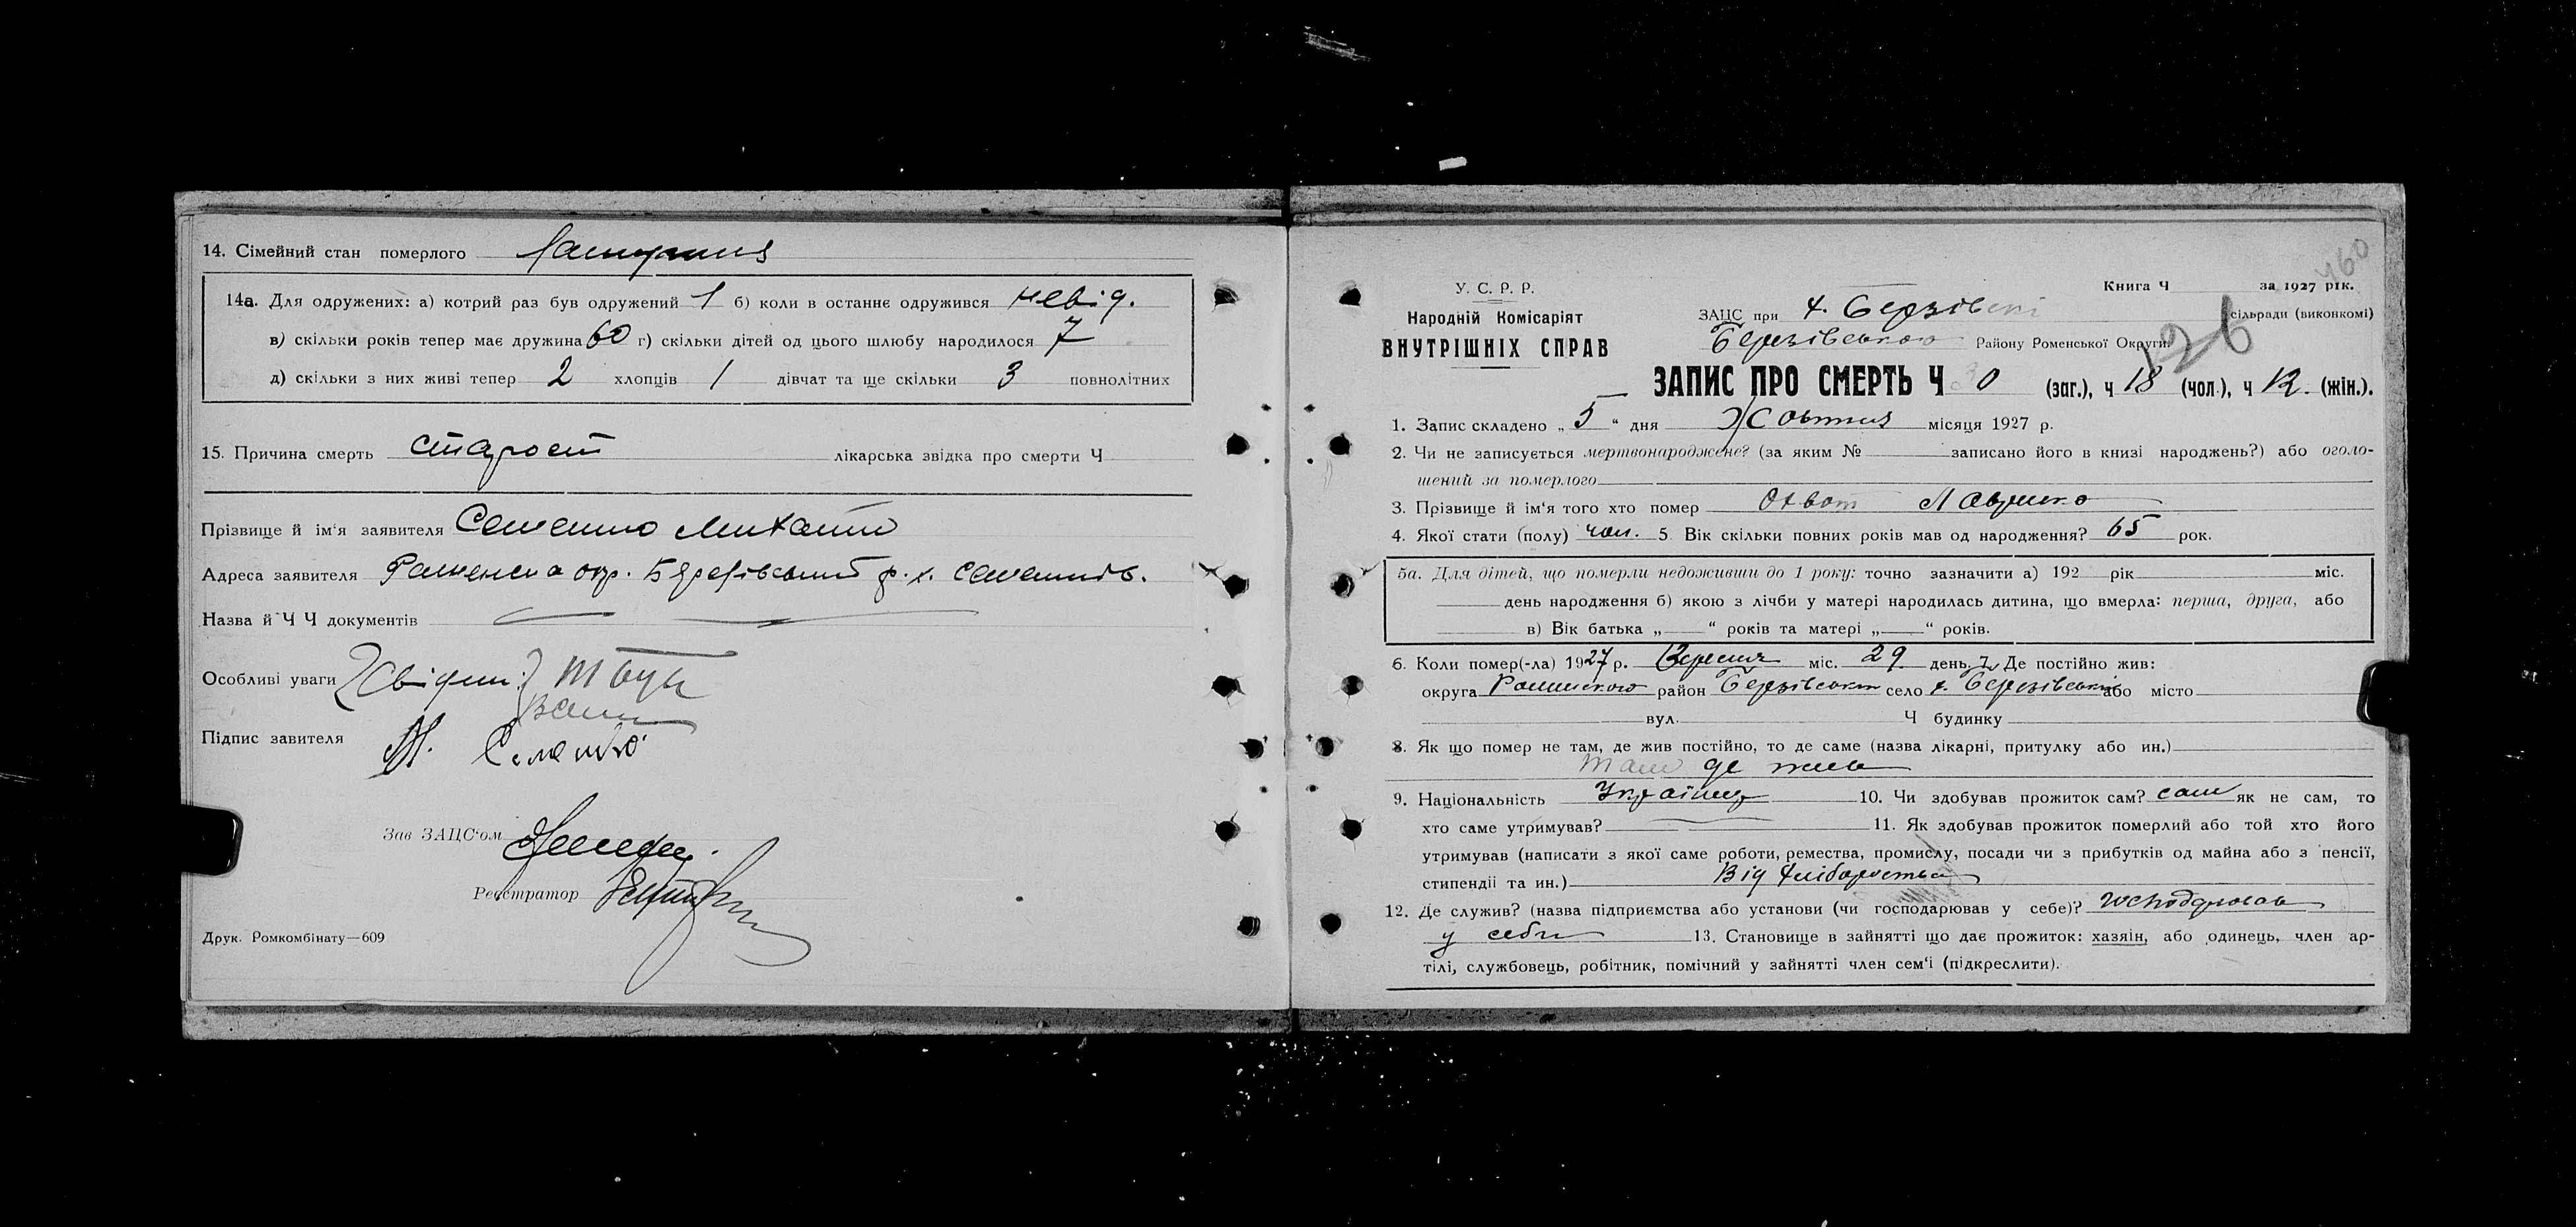 14. Сімейний стан померлого
14а. Для одружених: а) котрий раз був одружений 1 б) коли в останнє одружився невід.
в) скільки років тепер має дружина 60 г) скільки дітей од цього шлюбу народилося 7
д) скільки з них живі тепер 2 хлопців 1 дівчат та ще скільки 3 повнолітних
15. Причина смерть старост лікарська звідка про смерти Ч
Прізвище й ім'я заявителя Михайло
Адреса заявителя окр. Березівський р. х.
Назва й Ч Ч документів
Особливі уваги Свідки:
Підпис завителя М.
Зав ЗАЦС'ом
Реєстратор
Друк. Ромкомбінату—609
460
У. С. Р. Р.
Народній Комісаріят
ВНУТРІШНІХ СПРАВ
Книга Ч за 1927 рік.
ЗАЦС при х. Березівскі сільради (виконкомі)
Березівського Району Роменської Округи
126
ЗАПИС ПРО СМЕРТЬ Ч 30 (заг.), ч 18 (чол.), ч 12 (жін.).
1. Запис складено „ 5 “ дня Жовтня місяця 1927 р.
2. Чи не записується мертвонароджене? (за яким № записано його в книзі народжень?) або оголо-
шений за померлого
3. Прізвище й ім'я того хто помер Охват Лавринко
4. Якої стати (полу) чол. 5 Вік скільки повних років мав од народження? 65 рок.
5а. Для дітей, що померли недоживши до 1 року: точно зазначити а) 192 рік міс.
день народження б) якою з лічби у матері народилась дитина, що вмерла: перша, друга, або
в) Вік батька „ “ років та матері „ “ років.
6. Коли помер(-ла) 1927 р. Вересня міс. 29 день. 7. Де постійно жив:
округа Роменського район Березівськ село х. Березівський або місто
вул. Ч будинку
8. Як що помер не там, де жив постійно, то де саме (назва лікарні, притулку або ин.)
там де жив
9. Національність Українец 10. Чи здобував прожиток сам? сам як не сам, то
хто саме утримував? 11. Як здобував прожиток померлий або той хто його
утримував (написати з якої саме роботи, ремества, промислу, посади чи з прибутків од майна або з пенсії,
стипендії та ин.) Від хліборобства
12. Де служив? (назва підприємства або установи (чи господарював у себе)? господарював
у себе 13. Становище в зайнятті що дає прожиток: хазяін, або одинець, член ар-
тілі, службовець, робітник, помічний у зайнятті член сем'і (підкреслити).